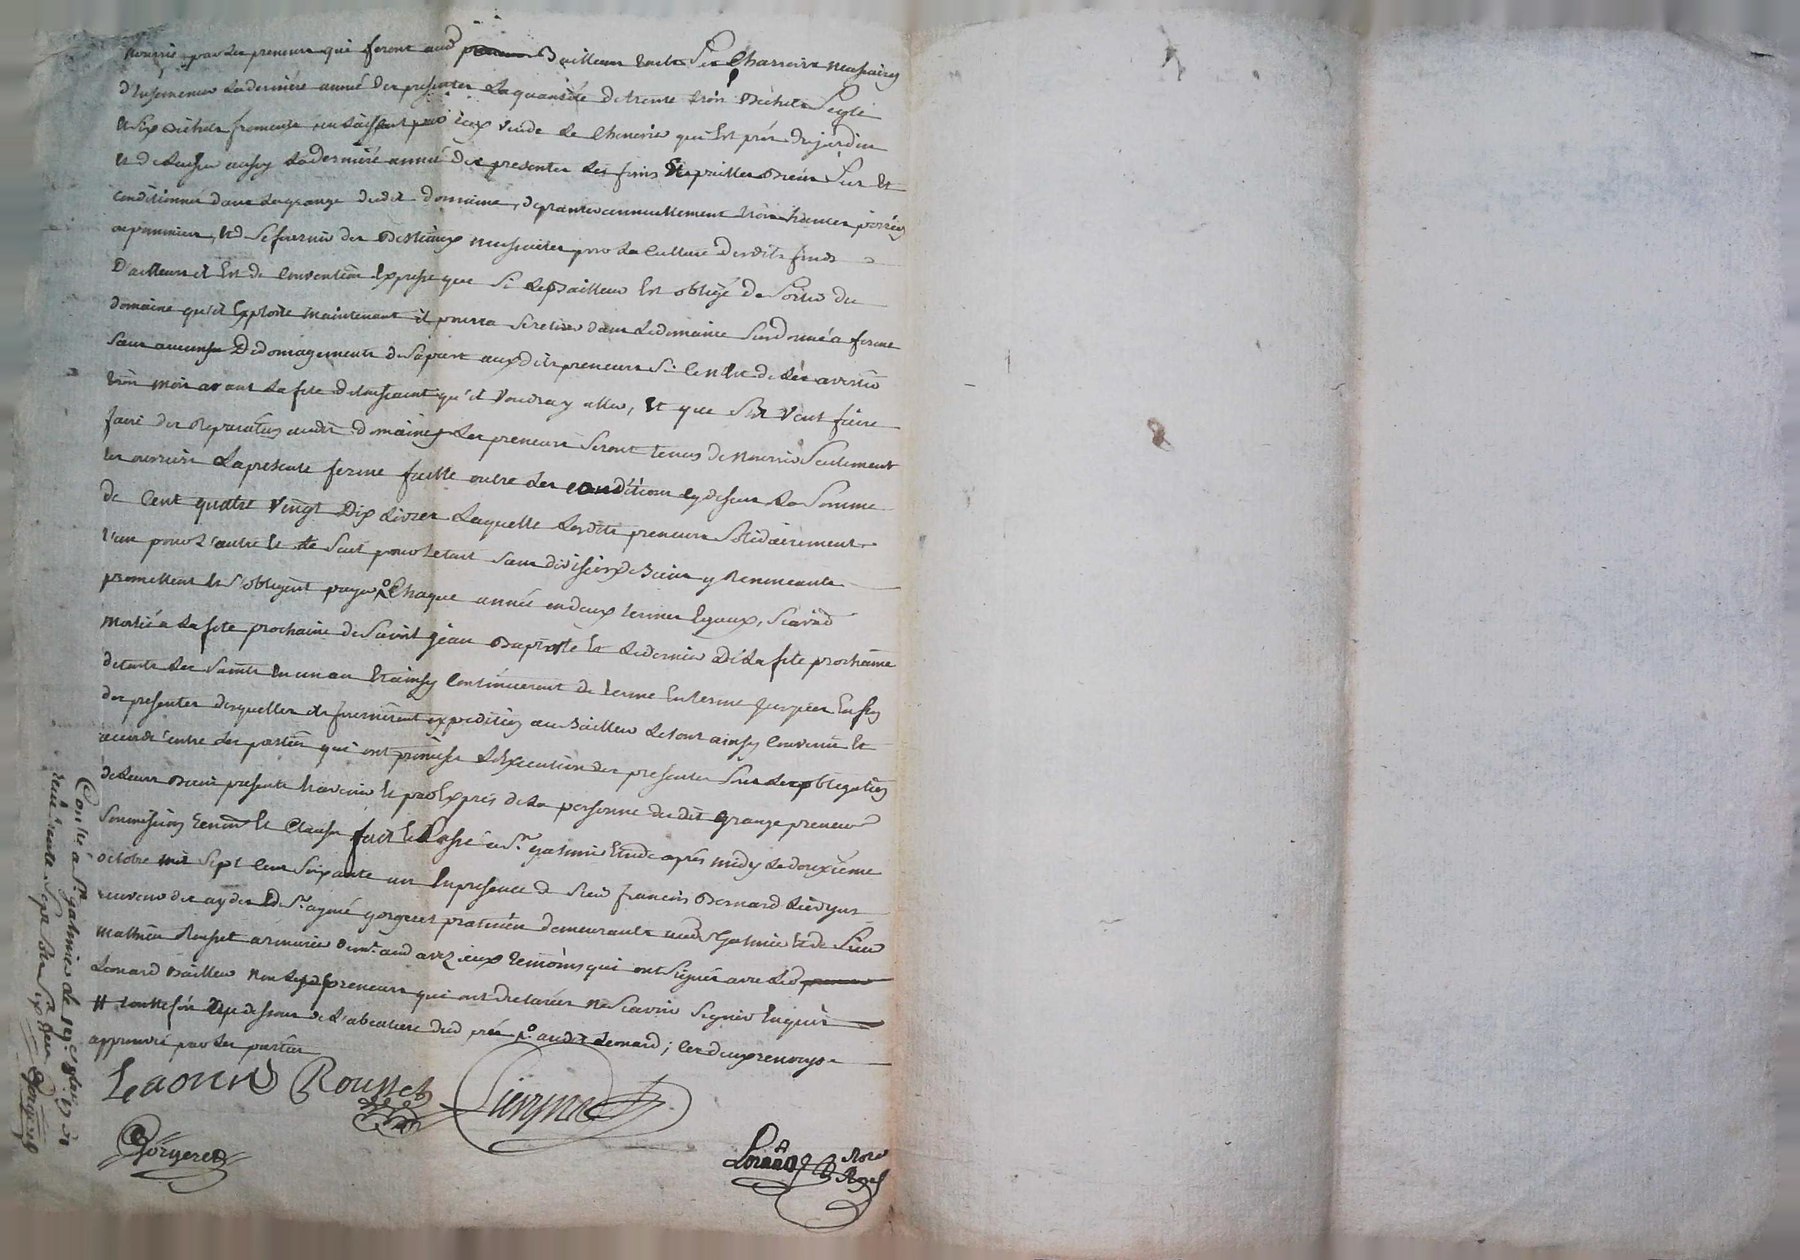 nourris par les preneurs qui feront aud bailleur toutes les Charrois necessaires
d'Ensemencer la derniere année des presentes la quantité de trente trois Bichets Seigle
et six Bichets froment, en laissant pour ceux vuide la Cheneviere qui Est près du jardin
et de laisser aussy la derniere année des presentes les foins et pailles bien Sur et
conditionnés dans la grange dudit domaine, de planter annuellement trois hantes poiriers
ou pommiers, et de se fournir des Bestiaux necessaires pour la Culture desdits fonds
D'ailleurs il Est de Convention Expresse que Si le Bailleur Est obligé de Sortir du
domaine qu'il Exploite maintenant il pourra se retirer dans le domaine Susdonné a ferme
Sans aucuns Dedomagements de sa part auxdits preneurs Si ce n'est de les avertir
trois mois avant la fete de toussaint qu'il voudra y aller, Et que S'il veut faire
faire des Reparations audit domaine les preneurs Seront tenus de nourrir Seulement
les ouvriers La presente ferme faitte outre les conditions cy dessus la Somme
de Cent quatre vingt Dix Livres Laquelle lesdits preneurs Solidairement
l'un pour l'autre et le Seul pour le tout sans division de Biens y Renonceants
promettent et s'obligent payer Chaque année en deux termes Egaux, Scavoir
moitié a la fete prochaine de Saint jean Baptiste Et le dernier a la fete prochaine
de toute les Saints En un an Et ainsy Continueront de terme En terme jusques En fin
des presentes desquelles ils fourniront expedition au Bailleur Le tout ainsy Convenu Et
accordé entre les parties qui ont promises L'Execution des presentes Sous les obligations
de leurs Biens presents Et avenir et par Exprès de la personne du dit Grange preneur
Soumissions Renon.ns Et Clauses fait Et Passé a St. galmier Etude après midy Le douzieme
octobre mil Sept Cent Soixante un En presence de Sieur francois Bernard
receveur des aydes Et Sr. aymé gorgeret praticien demeurants aud St Galmier Et de Sieur
mathieu Rousset armurier demt. aud temoins qui ont Signés avec led
Leonard Bailleur non les preneurs qui ont declarés ne Scavoir Signer Enquis
audit Leonard; les deux renvoys
approuvés par les parties
Leonard Rousset
Gorgeret
Note
Royal
Conllé a St. galmier le